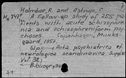 Holmboe, R. and Astrup, C.
A follow-up study of 255 pa-
tients with acute schizophre-
nia and schizophreniform psy-
choses. Copenhagen, Munks-
gaard, 1957.
61p. (Acta psychiatrica et
neurologica scandinavica. Suppl.
Vol. 32)
Bibliography